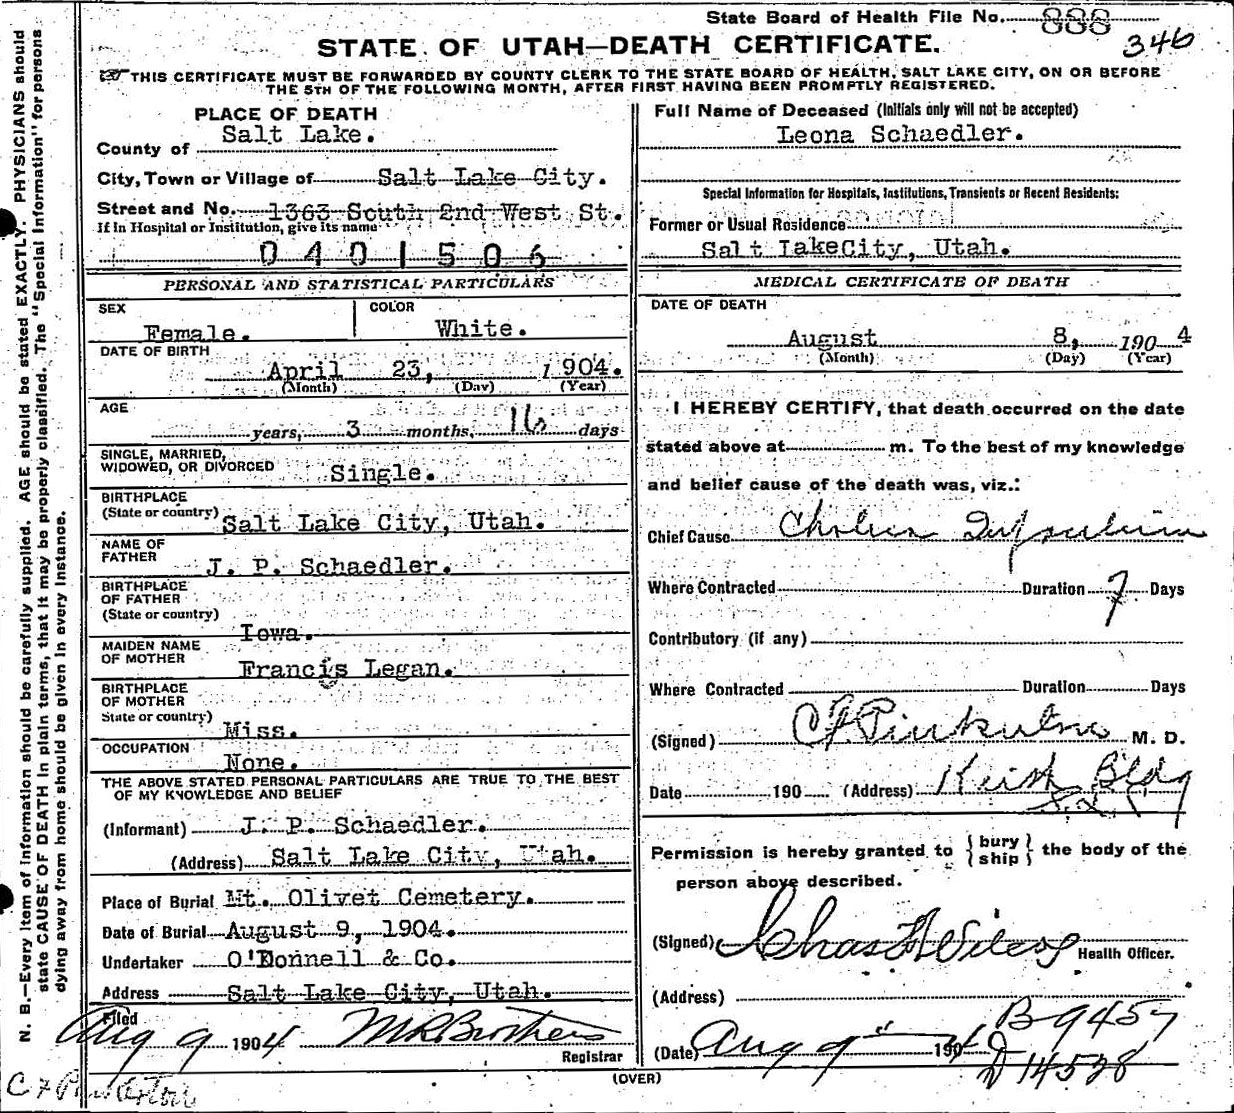 State Board of Health File No. 888
346
STATE OF UTAH—DEATH CERTIFICATE.
THIS CERTIFICATE MUST BE FORWARDED BY COUNTY CLERK TO THE STATE BOARD OF HEALTH, SALT LAKE CITY, ON OR BEFORE
THE 5TH OF THE FOLLOWING MONTH, AFTER FIRST HAVING BEEN PROMPTLY REGISTERED.
N. B.—Every item of information should be carefully supplied. AGE should be stated EXACTLY. PHYSICIANS should
state CAUSE OF DEATH in plain terms, that it may be properly classified. The "Special Information" for persons
dying away from home should be given in every instance.
PLACE OF DEATH
County of Salt Lake.
City, Town or Village of Salt Lake City.
Street and No. 1363 South 2nd West St.
If in Hospital or Institution, give its name
0401506
PERSONAL AND STATISTICAL PARTICULARS
SEX Female.
COLOR White.
DATE OF BIRTH
April 23, 1904.
(Month) (Day) (Year)
AGE
years, 3 months, 16 days
SINGLE, MARRIED,
WIDOWED, OR DIVORCED Single.
BIRTHPLACE
(State or country) Salt Lake City, Utah.
NAME OF
FATHER J. P. Schaedler.
BIRTHPLACE
OF FATHER
(State or country) Iowa.
MAIDEN NAME
OF MOTHER Francis Legan.
BIRTHPLACE
OF MOTHER
State or country) Miss.
OCCUPATION None.
THE ABOVE STATED PERSONAL PARTICULARS ARE TRUE TO THE BEST
OF MY KNOWLEDGE AND BELIEF
(Informant) J. P. Schaedler.
(Address) Salt Lake City, Utah.
Place of Burial Mt. Olivet Cemetery.
Date of Burial August 9, 1904.
Undertaker O'Donnell & Co.
Address Salt Lake City, Utah.
Filed
Aug 9 1904 M R Brothers
Registrar
Full Name of Deceased (Initials only will not be accepted)
Leona Schaedler.
Special Information for Hospitals, Institutions, Transients or Recent Residents:
Former or Usual Residence
Salt LakeCity, Utah.
MEDICAL CERTIFICATE OF DEATH
DATE OF DEATH
August 8, 1904
(Month) (Day) (Year)
I HEREBY CERTIFY, that death occurred on the date
stated above at m. To the best of my knowledge
and belief cause of the death was, viz.:
Chief Cause Cholera Infantum
Where Contracted Duration 7 Days
Contributory (if any)
Where Contracted Duration Days
(Signed) C F Pinkerton M. D.
Date 190 (Address) Bldg
Permission is hereby granted to {bury
ship} the body of the
person above described.
(Signed) Chas Health Officer.
(Address)
(Date) Aug 9 1904
B-9457
D 14528
(OVER)
C F Pinkerton